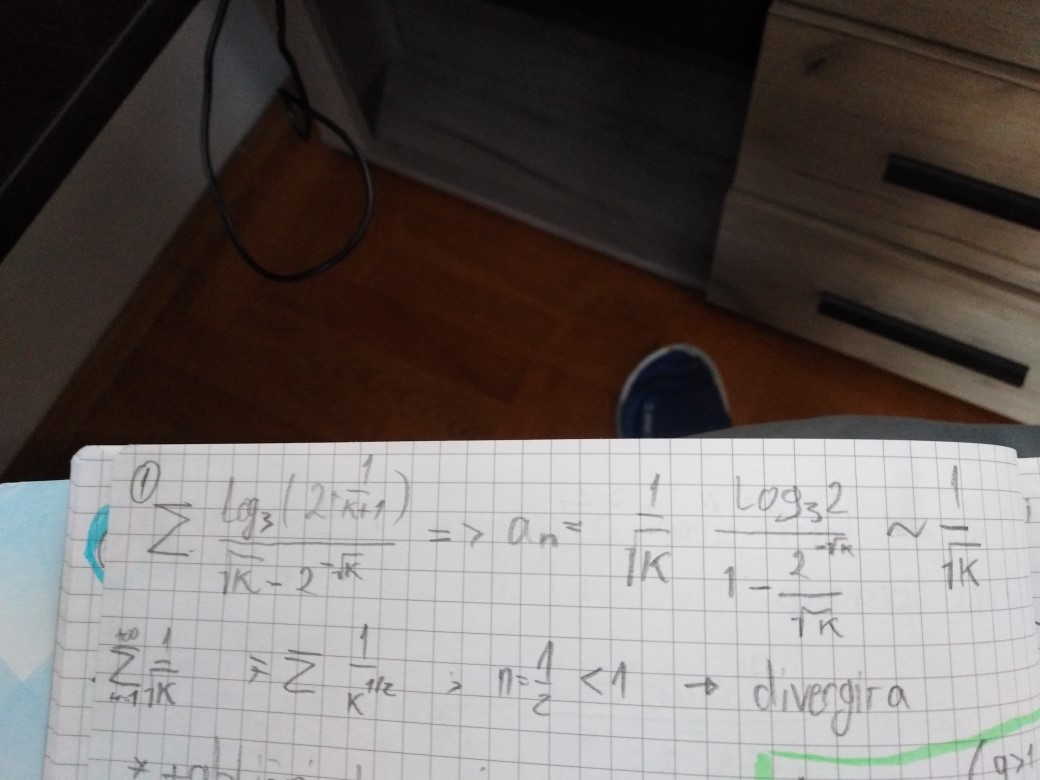 ① ∑ log₃(2·1/(k+1)) / (√k - 2^(-√k)) => aₙ = 1/√k · log₃2 / (1 - 2^(-√k)/√k) ~ 1/√k
∑ 1/√k = ∑ 1/k^(1/2) ; n = 1/2 < 1 → divergira